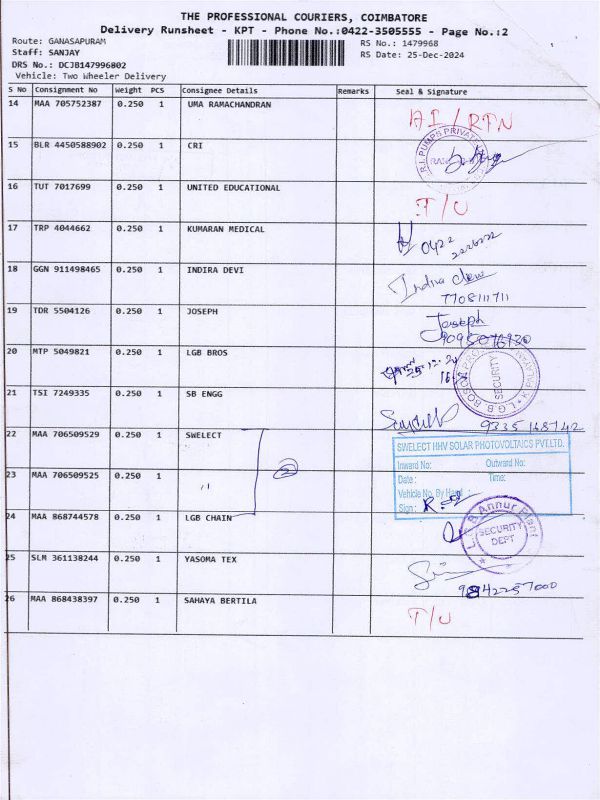 THE PROFESSIONAL COURIERS, COIMBATORE
Delivery Runsheet - KPT - Phone No.:0422-3505555 - Page No.:2
Route: GANASAPURAM
RS No.: 1479968
Staff: SANJAY
RS Date: 25-Dec-2024
DRS No.: DCJB147996802
Vehicle: Two Wheeler Delivery
S No Consignment No Weight PCS Consignee Details Remarks Seal & Signature
14 MAA 705752387 0.250 1 UMA RAMACHANDRAN AI/RTN
15 BLR 4450588902 0.250 1 CRI
16 TUT 7017699 0.250 1 UNITED EDUCATIONAL T/U
17 TRP 4044662 0.250 1 KUMARAN MEDICAL 0422
18 GGN 911498465 0.250 1 INDIRA DEVI Indira
7708111711
19 TDR 5504126 0.250 1 JOSEPH Joseph
9095076930
20 MTP 5049821 0.250 1 LGB BROS 25.12.24
SECURITY
21 TSI 7249335 0.250 1 SB ENGG
9335168742
22 MAA 706509529 0.250 1 SWELECT 2
SWELECT HHV SOLAR PHOTOVOLTAICS PVT.LTD.
Inward No: Outward No:
Date : Time:
23 MAA 706509525 0.250 1 ,,
Vehicle No. By Hand
Sign :
24 MAA 868744578 0.250 1 LGB CHAIN L.G.B. Annur Plant
SECURITY
DEPT
25 SLM 361138244 0.250 1 YASOMA TEX
9842257000
26 MAA 868438397 0.250 1 SAHAYA BERTILA T/U